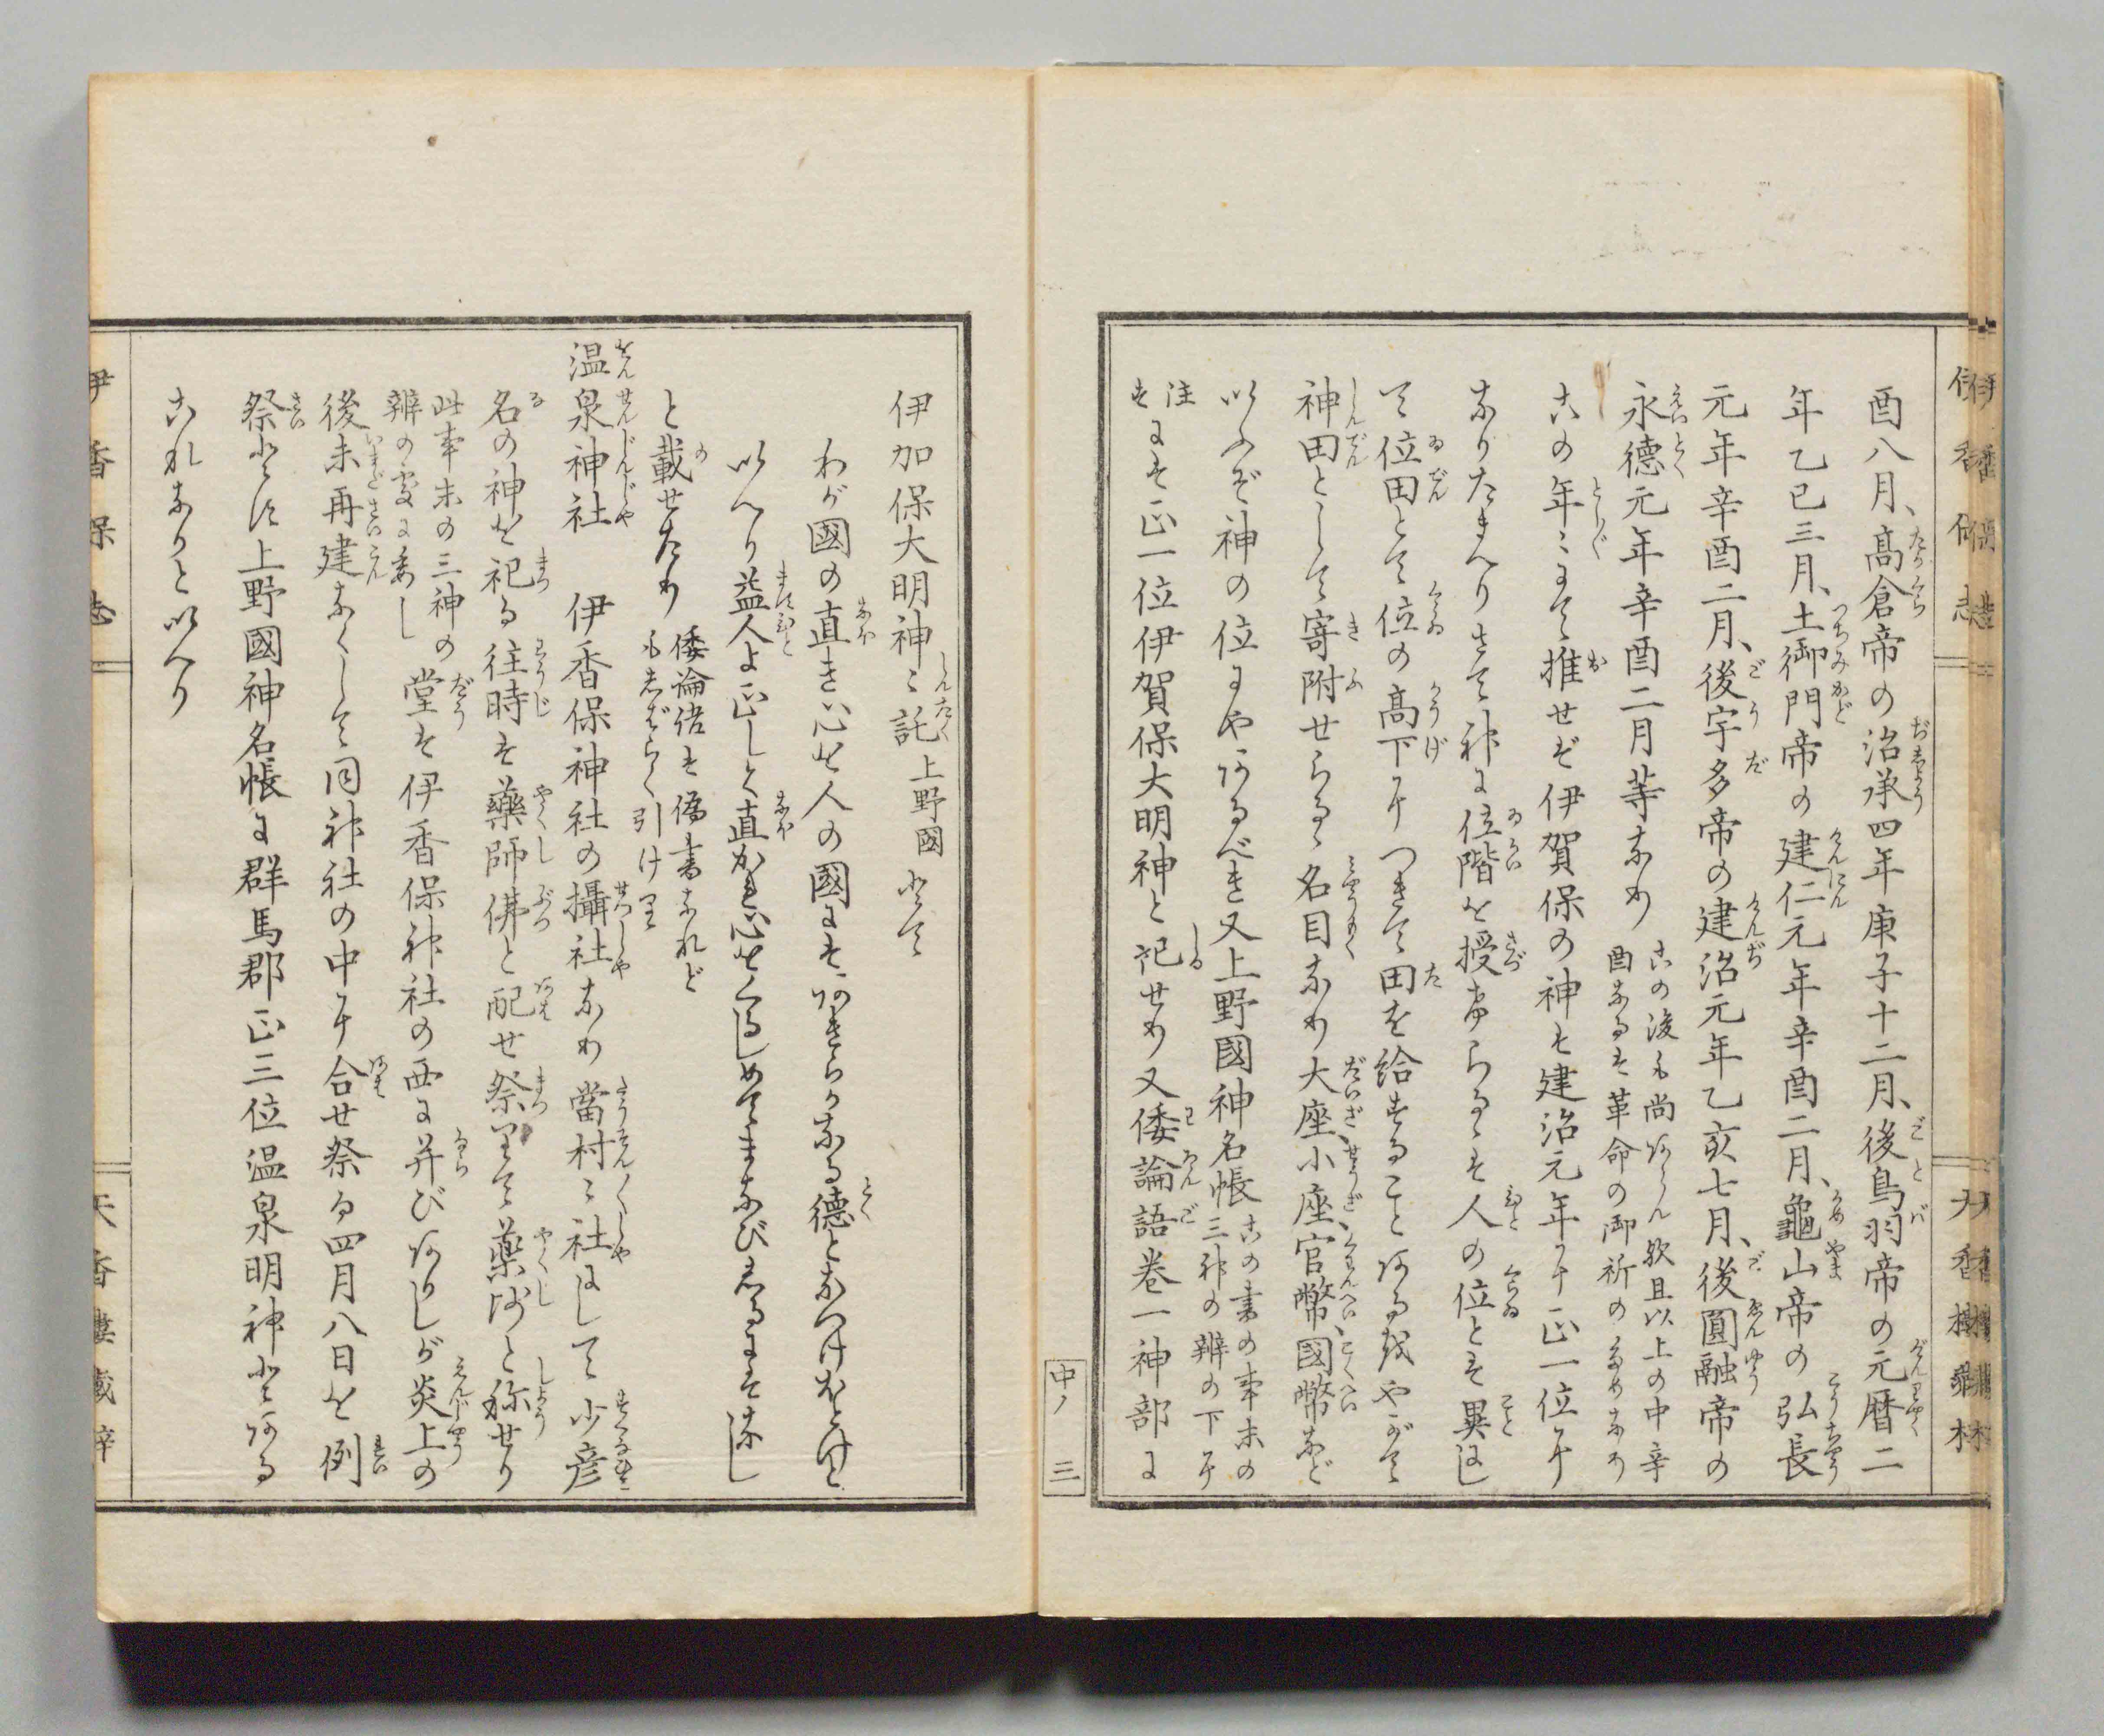 酉八月、高倉帝の治承四年庚子十二月、後鳥羽帝の元暦二
年乙巳三月、土御門帝の建仁元年辛酉二月、龜山帝の弘長
元年辛酉二月、後宇多帝の建治元年乙亥七月、後圓融帝の
永德元年辛酉二月等なり
この後も尚ほあらん歟且以上の中辛
酉なるは革命の御祈の爲めなり
この年〻にて推せば伊賀保の神は建治元年に正一位に
なりたまへりさて神に位階を授けらるゝは人の位とは異にし
て位田とて位の高下につきて田を給はることあるがやがて
神田として寄附せらるゝ名目なり大座、小座、官幣、國幣など
いふぞ神の位にやあるべき又上野國神名帳
この書の事末の
三神の辨の下に
注
す
には正一位伊賀保大明神と記せり又倭論語卷一神部に
伊加保大明神〻託 上野國 とて
わが國の直き心は人の國にはあきらかなる德となづけほとけは
いへり益人よ正しく直かれ心はくるしめてまなびえるには
と載せたり
倭論語は僞書なれど
もしばらく引けり
温泉神社 伊香保神社の攝社なり當村〻社にして少彦
名の神を祀る往時は藥師佛と配せ祭りて藥師と称せり
此事末の三神の
辨の處に委し
堂は伊香保神社の西に并びありしが炎上の
後未再建なくして同神社の中に合せ祭る四月八日を例
祭とす上野國神名帳に群馬郡正三位温泉明神とある
これなりといへり
中ノ 三
伊香保志
天香樓藏梓